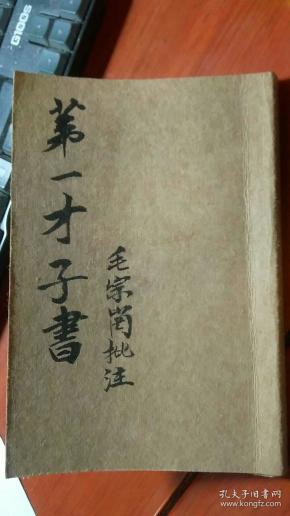 第一才子書
毛宗崗批注
G100S
孔夫子旧书网